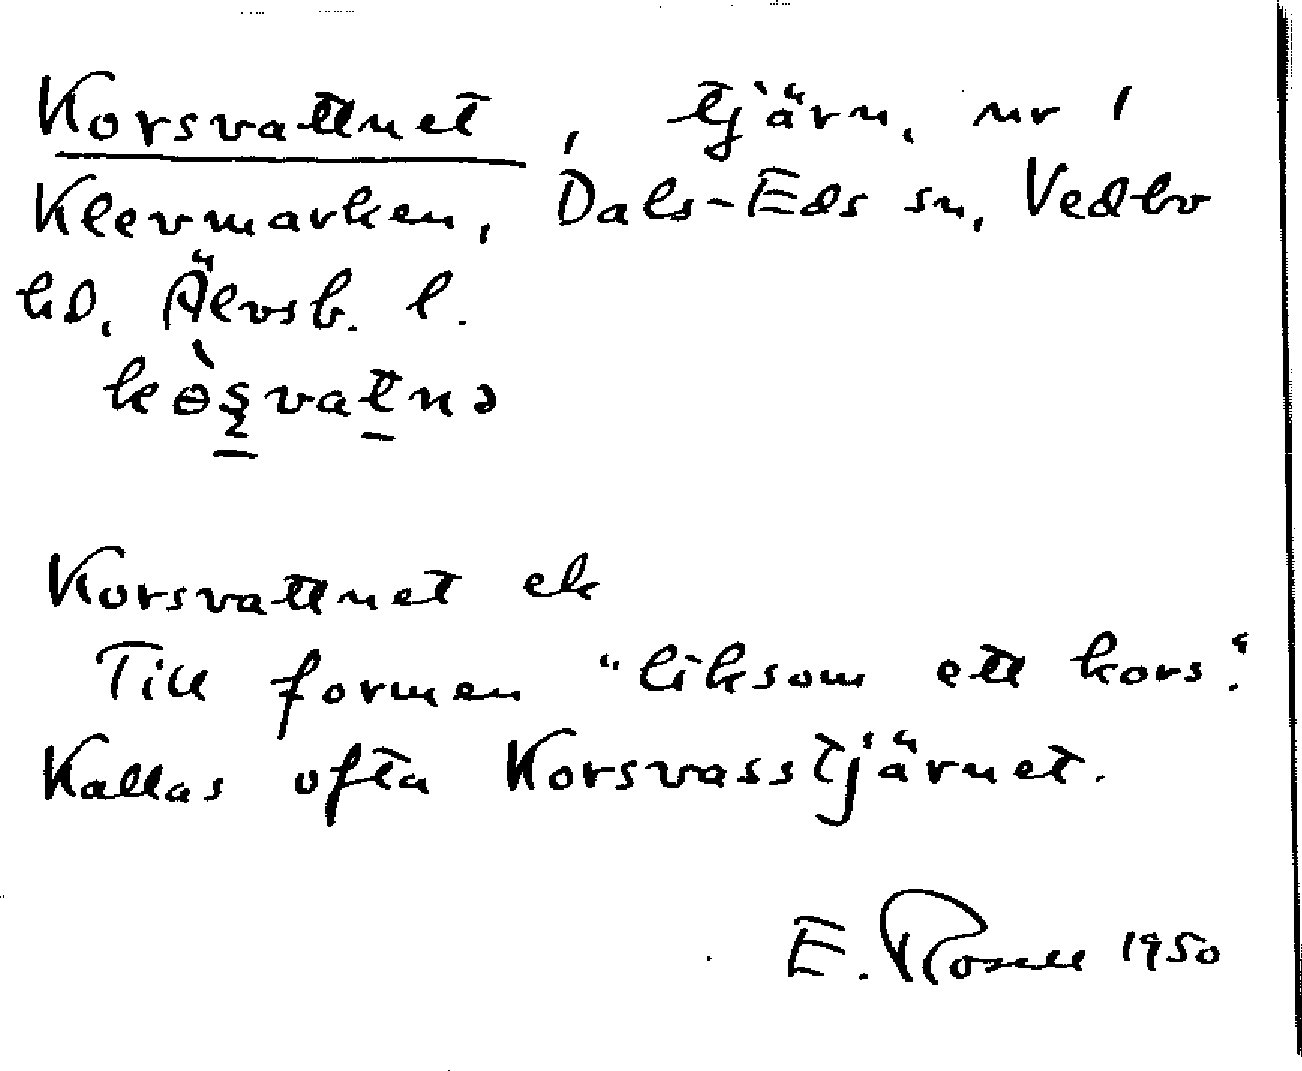 Korsvattnet, tjärn, nr 1
Klevmarken, Dals-Eds sn, Vedbo
hd, Älvsb. l.
kɵ̀ʂvatnə
Korsvattnet ek
Till formen "liksom ett kors".
Kallas ofta Korsvasstjärnet.
E. Rosell 1950